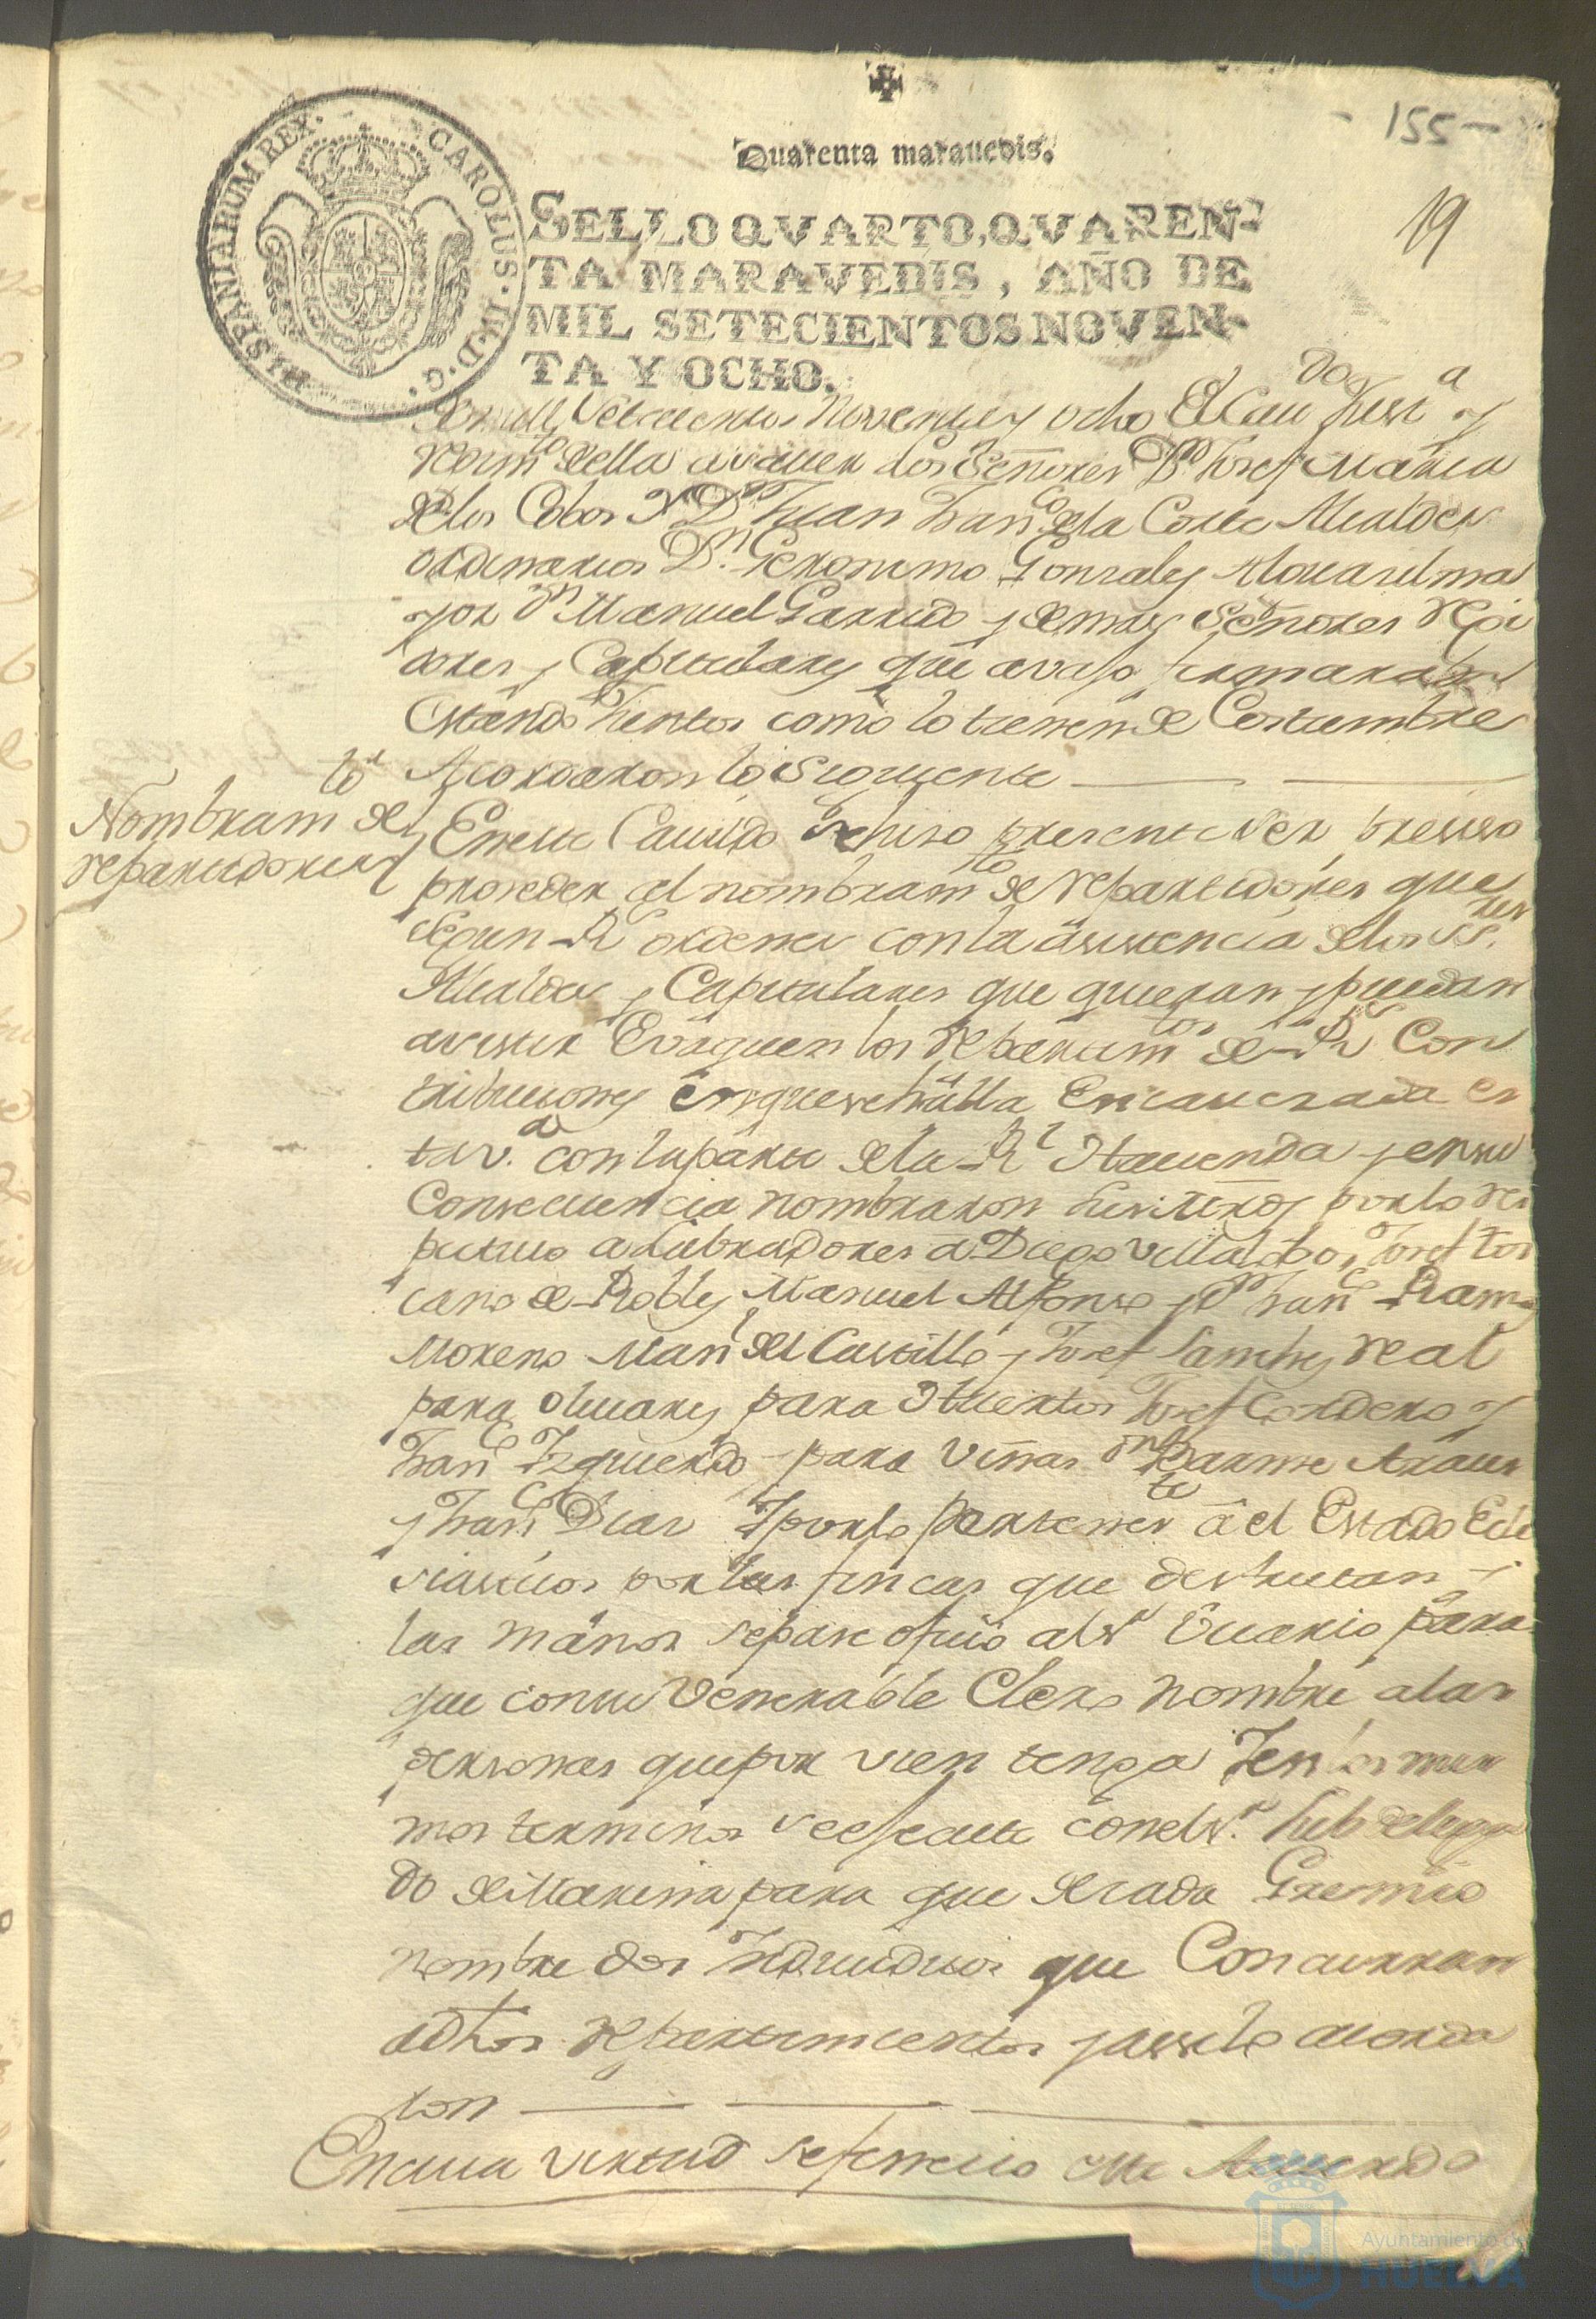 - 155 -
19
Quarenta marauedis.
HISPANIARUM REX. CAROLUS. IV. D. G.
SELLO QVARTO, QVAREN-
TA MARAVEDIS, AÑO DE
MIL SETECIENTOS NOVEN-
TA Y OCHO.
de mill Setecientos noventa y ocho El Cau.do Just.a y
Regim.to della a vaver los Señores Dn Josef Maria
de los Cobos Y Dn Juan Fran.co de la Corte Alcaldes
ordinarios Dn. Geronimo Gonzales Alguasil ma
yor Dn Manuel Garrido y demas Señores Regi
dores y Capitulares que avajo firmaran
Estando Juntos como lo tienen de Costumbre
Acordaron lo Siguiente
Nombram.to de
repartidores
En este Cavildo se hiso presente ser presiso
proseder al nombram.to de repartidores que
segun Rs ordenes con la asistencia de los SS.res
Alcaldes y Capitulares que quieran y puedan
asistir Evaquen los repartim.tos de Rs Con
tribusiones en que se halla Encavezada es
ta v.a con la parte de la Rl Hacienda y en su
Consecuencia nombraron por lo res
pectivo a Labradores a Diego Villalobos, Josef Tos
cano de Robles Manuel Alfonso y Dn Fran.co Ram.s
Moreno Man.l del Castillo y Josef Sanches real
para olivares para Huertos Josef Cordero y
Fran.co Izquierdo para Viñas Dn Araus
y Fran.co Dias Y por lo pertenes.te a el Estado Ecle
siasticos por las fincas que desfrutan y
las manos se pase ofisio al Sr Vicario para
que con su Venerable Clero nombre a las
personas que por vien tenga Y en los mis
mos terminos se efectue con el Sr. Subdelega
do de Marina para que de cada Gremio
nombre dos Individuos que Concurran
a dhos repartimientos y assi lo acorda
ron
En cuia virtud se fenesio este Acuerdo
Ayuntamiento de
HUELVA